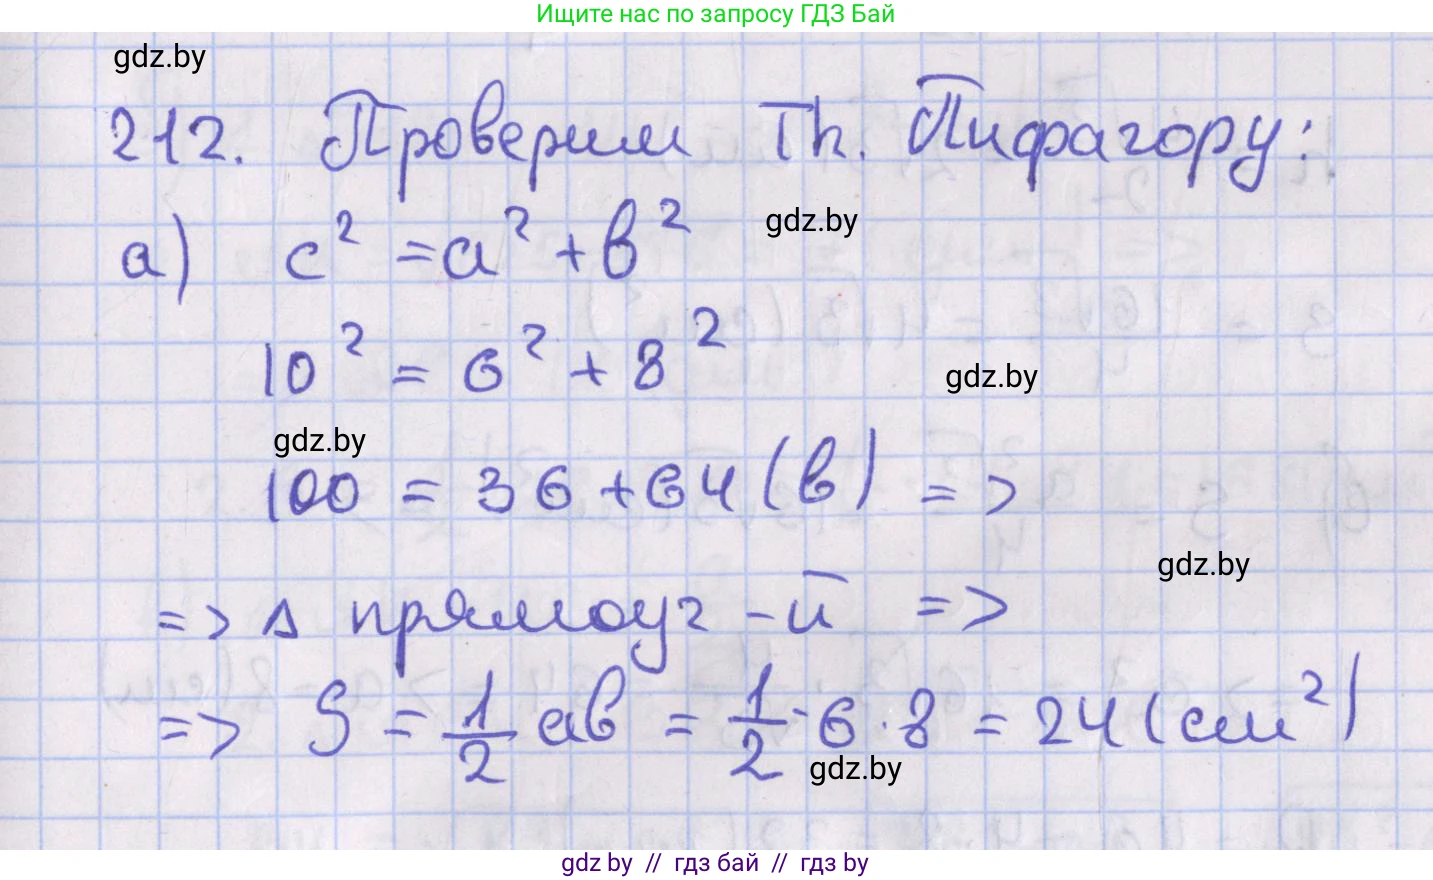 Ищите нас по запросу ГДЗ Бай
gdz.by
212. Проверим Th. Пифагору:
gdz.by
а) c² = a² + b²
10² = 6² + 8²
gdz.by
gdz.by
100 = 36 + 64 (в) =>
gdz.by
=> Δ прямоуг-й =>
=> S = 1/2 ab = 1/2 · 6 · 8 = 24 (см²)
gdz.by
gdz by // гдз бай // гдз by